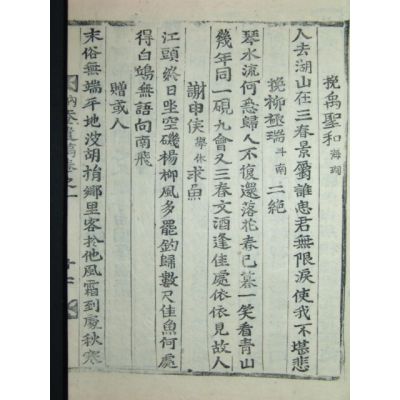 挽萬聖和海瑚
人去湖山在三春景屬誰思君無限淚使我不堪悲
挽柳極瑞斗南二絶
琴水流何急歸人不復還落花春已暮一笑看青山
幾年同一硯九會又三春文酒逢佳處依依見故人
謝申侯學休求魚
江頭終日坐空磯楊柳風多罷釣歸數尺佳魚何處
得白鴣無語向南飛
贈或人
末俗無端平地波胡捎鄉里客於他風霜到處秋寒
遺稿卷之一